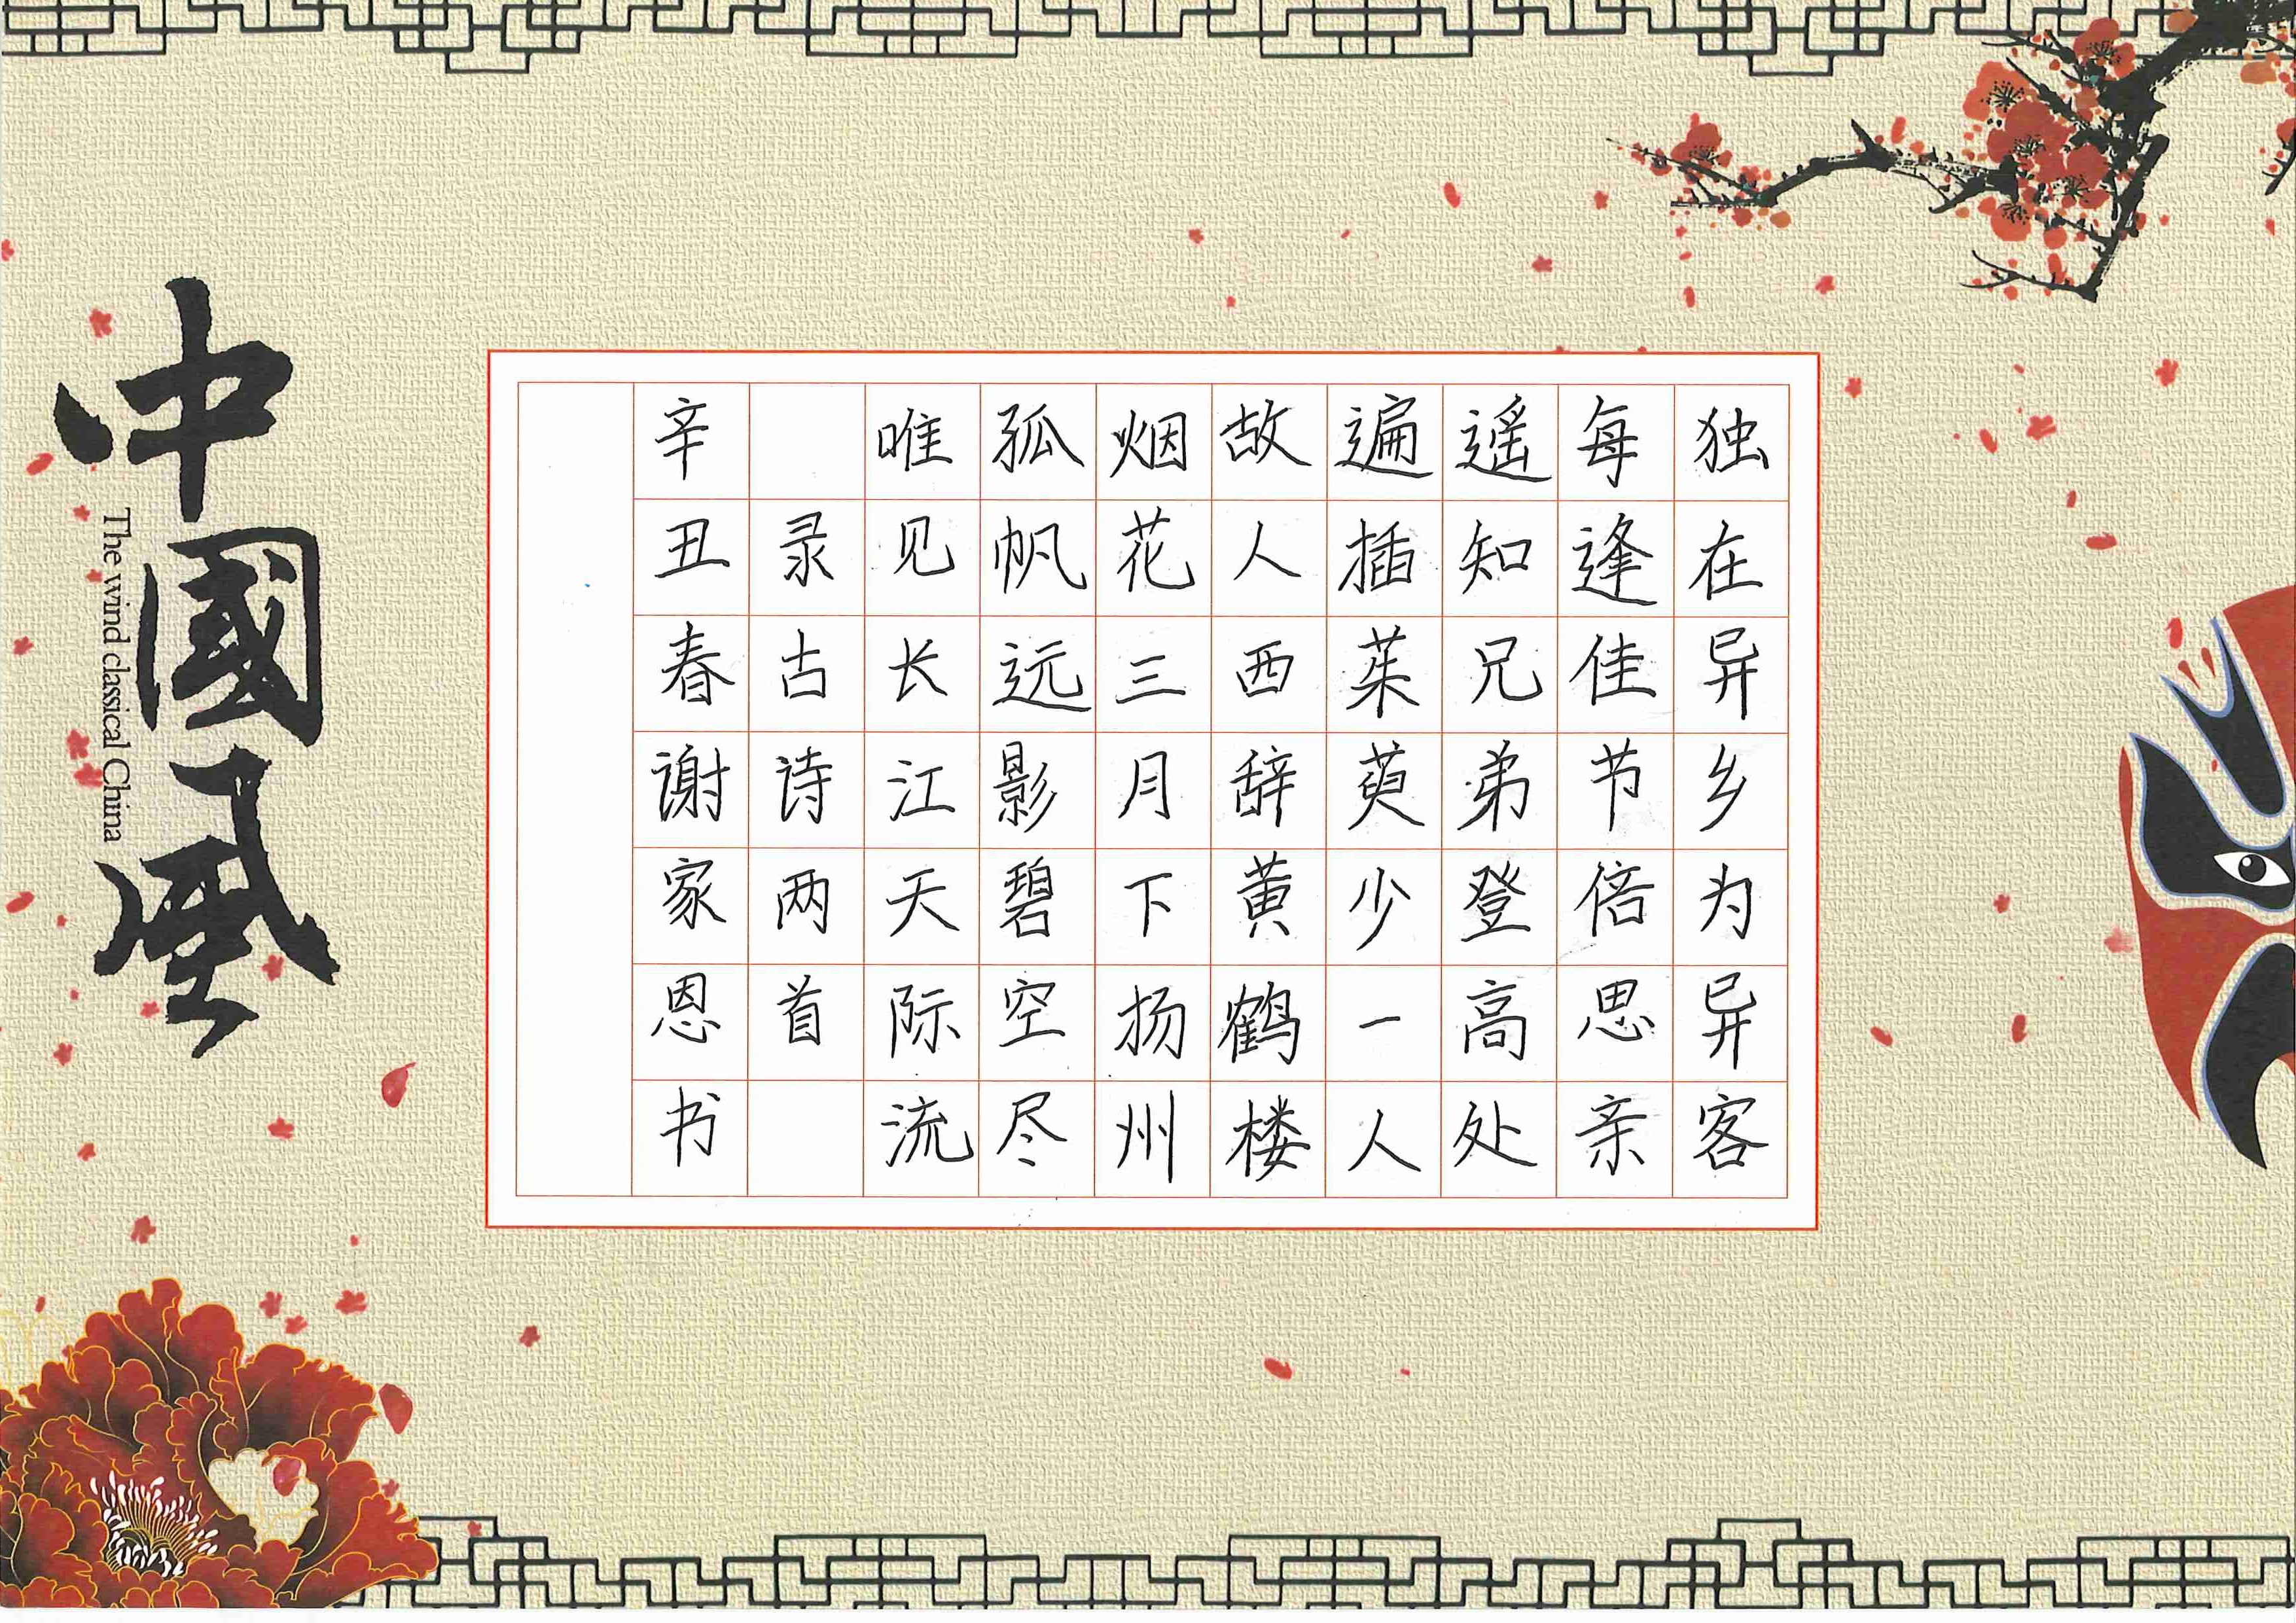 独在异乡为异客
每逢佳节倍思亲
遥知兄弟登高处
遍插茱萸少一人
故人西辞黄鹤楼
烟花三月下扬州
孤帆远影碧空尽
唯见长江天际流
录古诗两首
辛丑春谢家恩书
中國風
The wind classical China